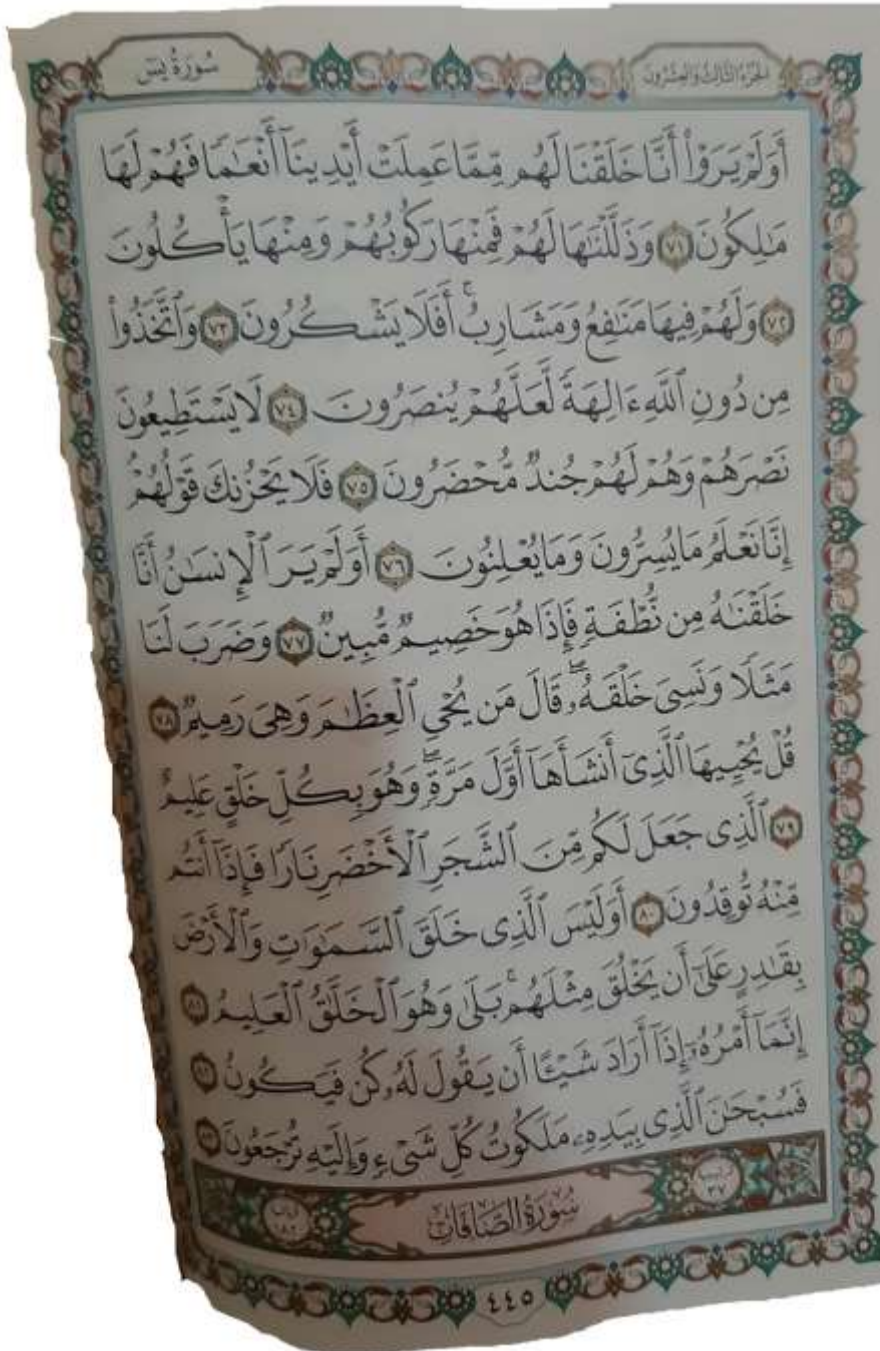 الجزء الثالث والعشرون
سُورَةُ يسٓ
أَوَلَمْ يَرَوْا۟ أَنَّا خَلَقْنَا لَهُم مِّمَّا عَمِلَتْ أَيْدِينَآ أَنْعَـٰمًا فَهُمْ لَهَا
مَـٰلِكُونَ ٧١ وَذَلَّلْنَـٰهَا لَهُمْ فَمِنْهَا رَكُوبُهُمْ وَمِنْهَا يَأْكُلُونَ
٧٢ وَلَهُمْ فِيهَا مَنَـٰفِعُ وَمَشَارِبُ ۚ أَفَلَا يَشْكُرُونَ ٧٣ وَٱتَّخَذُوا۟
مِن دُونِ ٱللَّهِ ءَالِهَةً لَّعَلَّهُمْ يُنصَرُونَ ٧٤ لَا يَسْتَطِيعُونَ
نَصْرَهُمْ وَهُمْ لَهُمْ جُندٌ مُّحْضَرُونَ ٧٥ فَلَا يَحْزُنكَ قَوْلُهُمْ ۘ
إِنَّا نَعْلَمُ مَا يُسِرُّونَ وَمَا يُعْلِنُونَ ٧٦ أَوَلَمْ يَرَ ٱلْإِنسَـٰنُ أَنَّا
خَلَقْنَـٰهُ مِن نُّطْفَةٍ فَإِذَا هُوَ خَصِيمٌ مُّبِينٌ ٧٧ وَضَرَبَ لَنَا
مَثَلًا وَنَسِىَ خَلْقَهُۥ ۖ قَالَ مَن يُحْىِ ٱلْعِظَـٰمَ وَهِىَ رَمِيمٌ ٧٨
قُلْ يُحْيِيهَا ٱلَّذِىٓ أَنشَأَهَآ أَوَّلَ مَرَّةٍ ۖ وَهُوَ بِكُلِّ خَلْقٍ عَلِيمٌ
٧٩ ٱلَّذِى جَعَلَ لَكُم مِّنَ ٱلشَّجَرِ ٱلْأَخْضَرِ نَارًا فَإِذَآ أَنتُم
مِّنْهُ تُوقِدُونَ ٨٠ أَوَلَيْسَ ٱلَّذِى خَلَقَ ٱلسَّمَـٰوَٰتِ وَٱلْأَرْضَ
بِقَـٰدِرٍ عَلَىٰٓ أَن يَخْلُقَ مِثْلَهُم ۚ بَلَىٰ وَهُوَ ٱلْخَلَّـٰقُ ٱلْعَلِيمُ ٨١
إِنَّمَآ أَمْرُهُۥٓ إِذَآ أَرَادَ شَيْـًٔا أَن يَقُولَ لَهُۥ كُن فَيَكُونُ ٨٢
فَسُبْحَـٰنَ ٱلَّذِى بِيَدِهِۦ مَلَكُوتُ كُلِّ شَىْءٍ وَإِلَيْهِ تُرْجَعُونَ ٨٣
ترتيبها ٣٧
سُورَةُ الصَّافَّاتِ
آياتها ١٨٢
٤٤٥